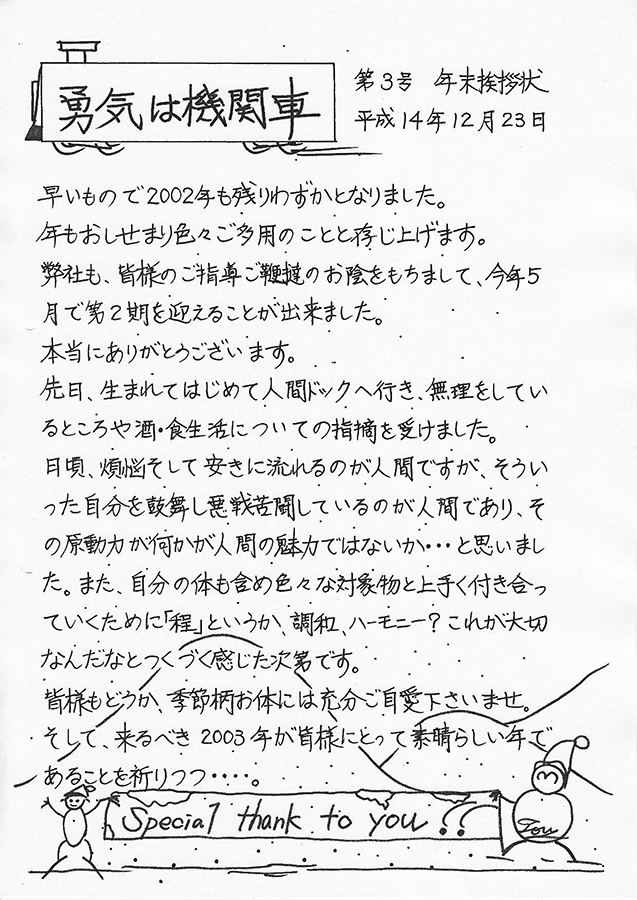 勇気は機関車
第3号 年末挨拶状
平成14年12月23日
早いもので2002年も残りわずかとなりました。
年もおしせまり色々ご多用のことと存じ上げます。
弊社も、皆様のご指導ご鞭撻のお陰をもちまして、今年5
月で第2期を迎えることが出来ました。
本当にありがとうございます。
先日、生まれてはじめて人間ドックへ行き、無理をしてい
るところや酒・食生活についての指摘を受けました。
日頃、煩悩そして安きに流れるのが人間ですが、そうい
った自分を鼓舞し悪戦苦闘しているのが人間であり、そ
の原動力が何かが人間の魅力ではないか・・・と思いまし
た。また、自分の体も含め色々な対象物と上手く付き合っ
ていくために「程」というか、調和、ハーモニー?これが大切
なんだなとつくづく感じた次第です。
皆様もどうか、季節柄お体には充分ご自愛下さいませ。
そして、来るべき2003年が皆様にとって素晴らしい年で
あることを祈りつつ・・・・。
Special thank to you !!